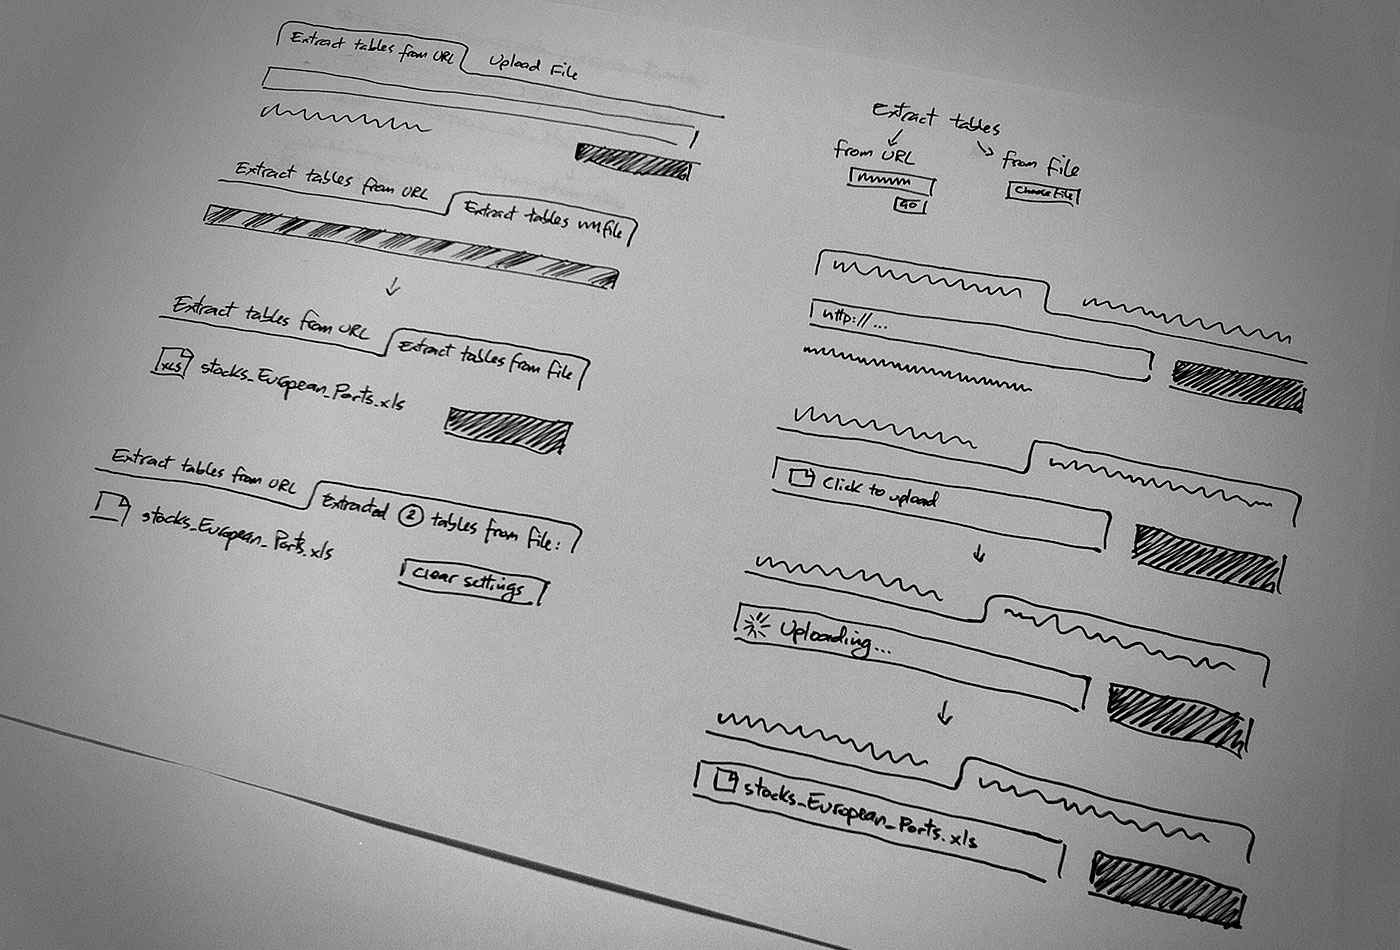 Extract tables from URL
Upload File
Extract tables from URL
Extract tables file
Extract tables from URL
Extract tables from file
XLS
stocks_European_Ports.xls
Extract tables from URL
Extracted 2 tables from file:
stocks_European_Ports.xls
clear settings
Extract tables
from URL
from file
Choose File
GO
http://...
Click to upload
Uploading...
stocks_European_Ports.xls